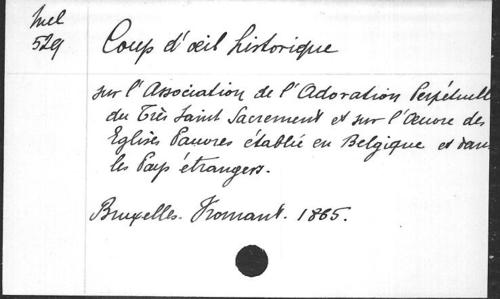 Mel
529
Coup d'œil historique
sur l'Association de l'Adoration Perpétuelle
du Très Saint Sacrement et sur l'Œuvre des
Eglises Pauvres établie en Belgique et dans
les Pays étrangers.
Bruxelles. Fromant. 1865.